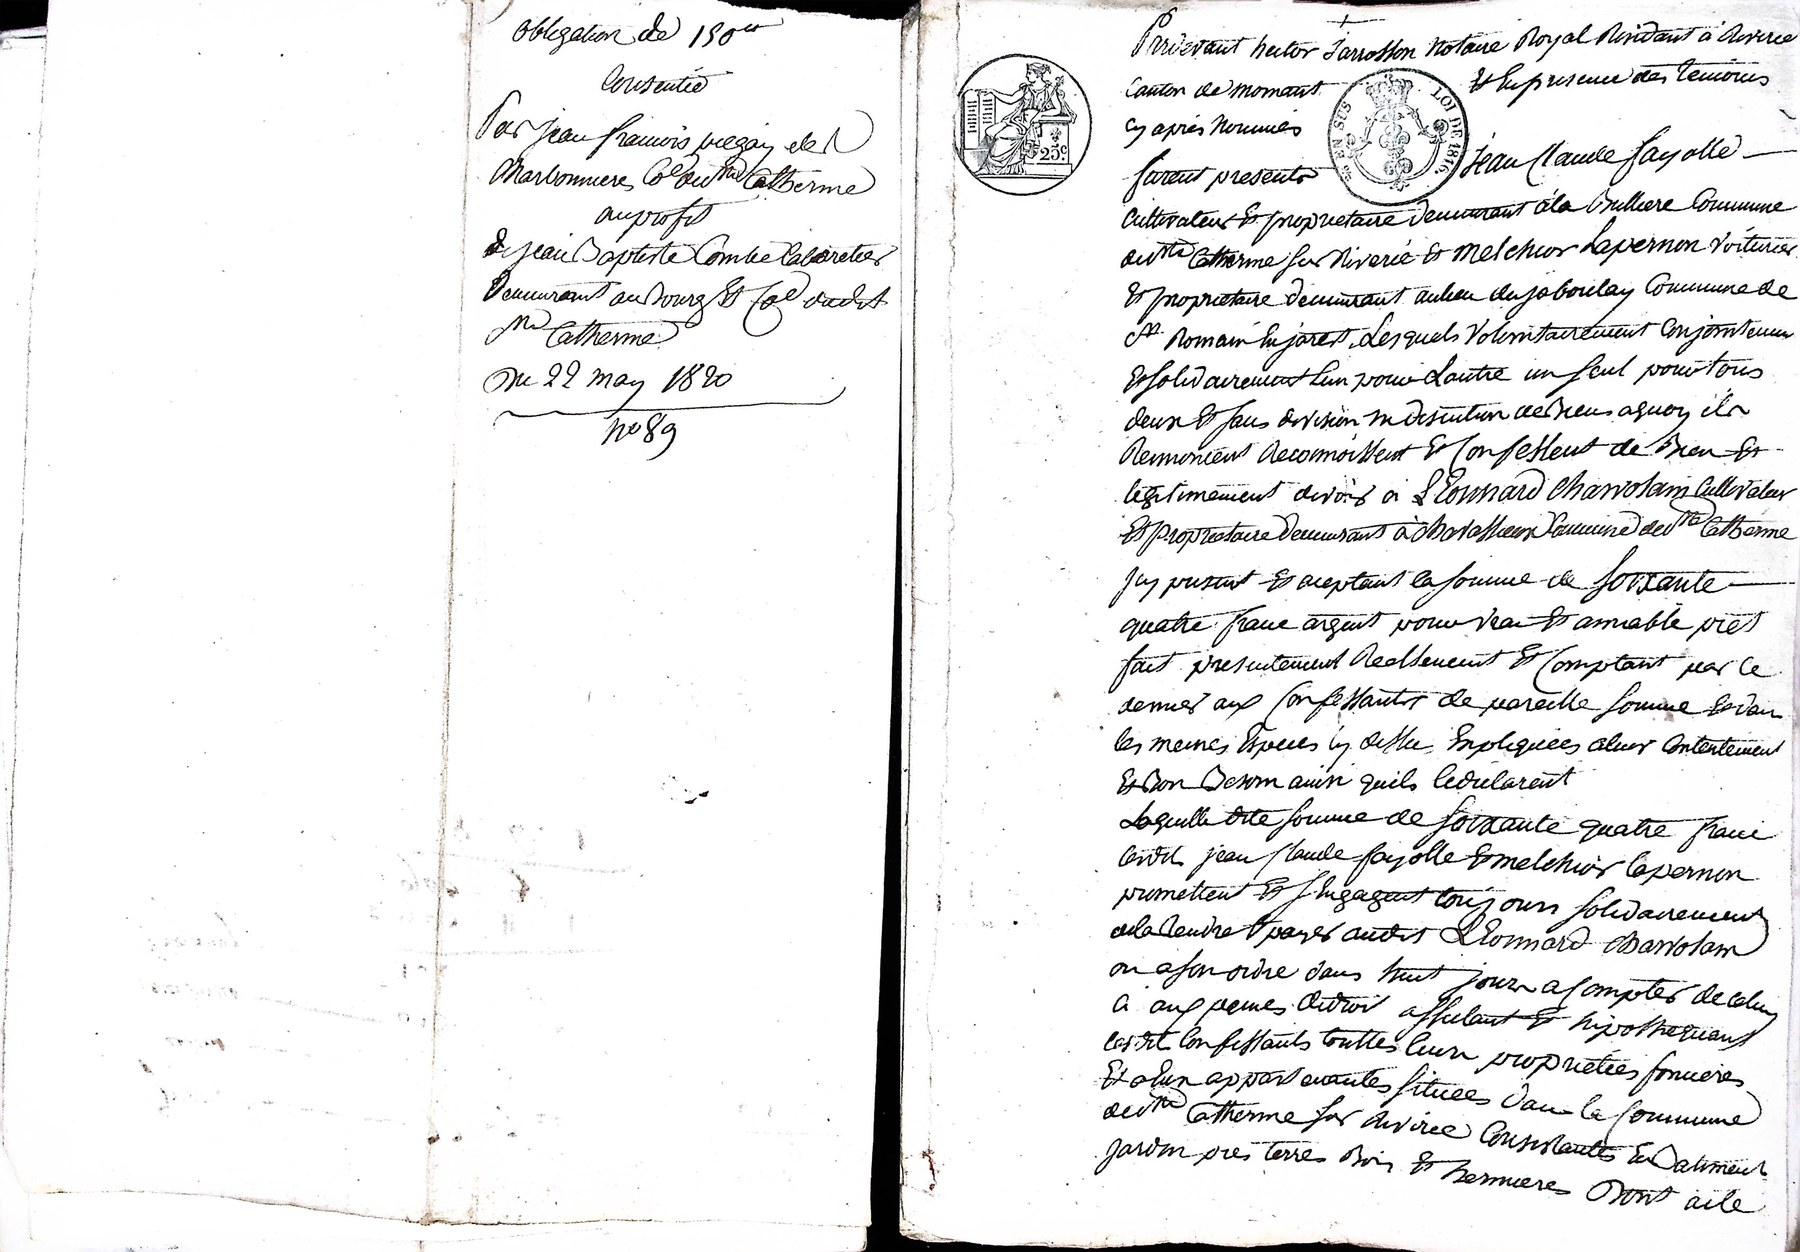 obligation de 150tt
Consentie
Par jean francois
Charbonnieres Coe de Ste Catherine
au profit
de jean Baptiste Combe Cabaretier
Demeurant au Bourg Et Coe dudit
Ste Catherine
Du 22 may 1820
no 89
Pardevant hector Jarrosson Notaire Royal Residant à Riverie
Canton de mornant Et En presence des temoins
cy après Nommés
furent presents jean Claude fayolle
Cultivateur Et proprietaire demeurant à la Commune
de Ste Catherine sur Riverie Et Melchior Lapernon Voiturier
Et proprietaire demeurant au lieu du jaboulay Commune de
St Romain En jarest, Lesquels Volontairement Conjointement
Et solidairement L'un pour L'autre un seul pour tous
deux Et sans division ni discution de Biens a quoy ils
Renoncent Reconnoissent Et Confessent de Bien Et
légitimement devoir à Léonnard Charvolain Cultivateur
Et Proprietaire Demeurant à Commune de Ste Catherine
jcy présent Et aceptant la somme de soixante
quatre franc argent pour vrai Et amiable prêt
fait presentement Reellement Et Comptant par ce
dernier aux Confessants de pareille somme Et dans
les memes Especes cy dessu Expliquées a leur Contentement
Et Bon Besoin ainsi quils le déclarent
Laquelle dite somme de soixante quatre franc
lesdits jean Claude fayolle Et melchior lapernon
promettent Et s'Engagent toujours solidairement
de la Rendre Et payer audit Léonnard Charvolain
ou a son ordre dans huit jours a Compter de celui
ci aux peines de droit affectant Et hipothequant
lesdits Confessants touttes leurs propriétées foncieres
Et a Eux appartenantes situées dans la Commune
de Ste Catherine sur Riverie Consistantes En Batiment
jardin prés terres Bois Et hermieres Dont acte
25c
EN SUS
LOI DE 1816